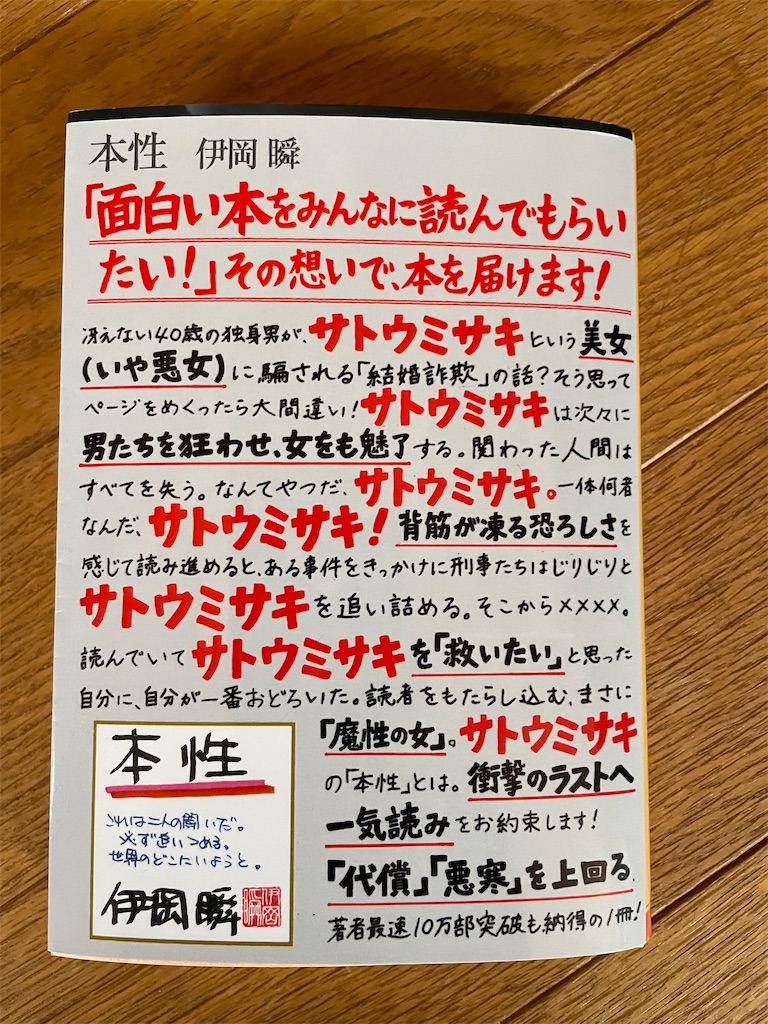 本性 伊岡 瞬
「面白い本をみんなに読んでもらい
たい!」その想いで、本を届けます!
冴えない40歳の独身男が、サトウミサキという美女
(いや悪女)に騙される「結婚詐欺」の話?そう思って
ページをめくったら大間違い!サトウミサキは次々に
男たちを狂わせ、女をも魅了する。関わった人間は
すべてを失う。なんてやつだ、サトウミサキ。一体何者
なんだ、サトウミサキ!背筋が凍る恐ろしさを
感じて読み進めると、ある事件をきっかけに刑事たちはじりじりと
サトウミサキを追い詰める。そこから××××。
読んでいてサトウミサキを「救いたい」と思った
自分に、自分が一番おどろいた。読者をもたらし込む、まさに
「魔性の女」。サトウミサキ
の「本性」とは。衝撃のラストへ
一気読みをお約束します!
「代償」「悪寒」を上回る
著者最速10万部突破も納得の1冊!
本性
これは二人の闘いだ。
必ず追いつめる。
世界のどこにいようと。
伊岡瞬